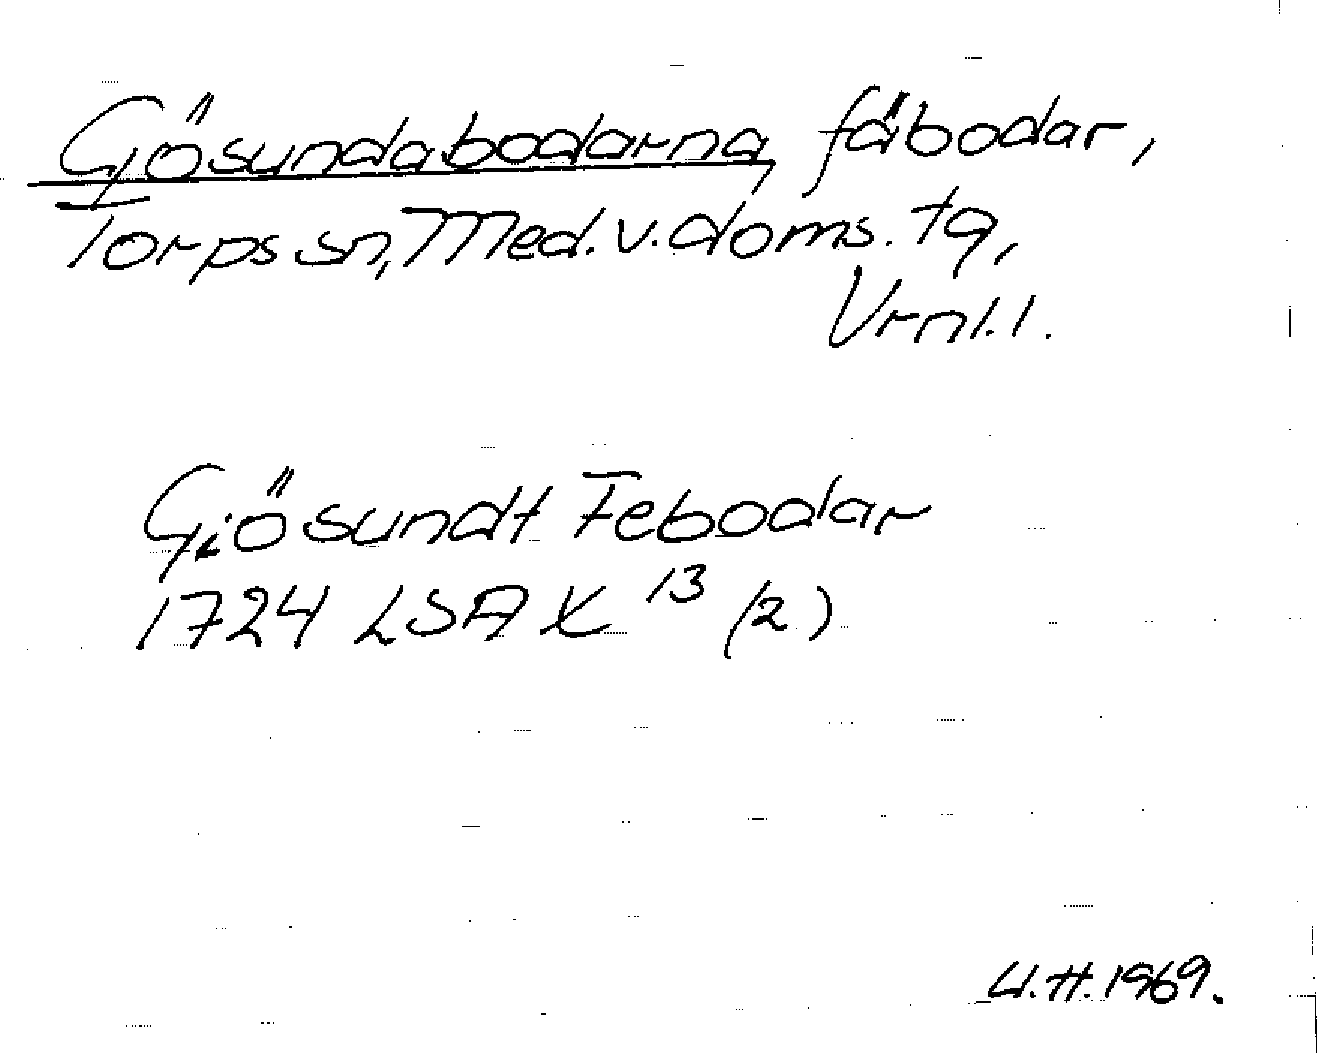 Gjösundabodarna, fäbodar,
Torps sn, Med.v.doms. tg,
Vrnl.l.
Giösundt Febodar
1724 LSA X 13 (2)
U.H. 1969.